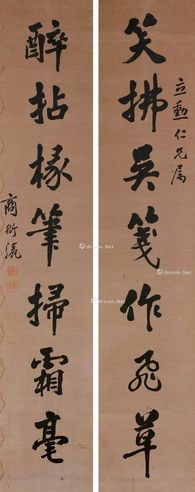 立勳仁兄属
笑拂吳箋作飛草
醉拈椽筆掃霜毫
商衍瀛
Artron.Net